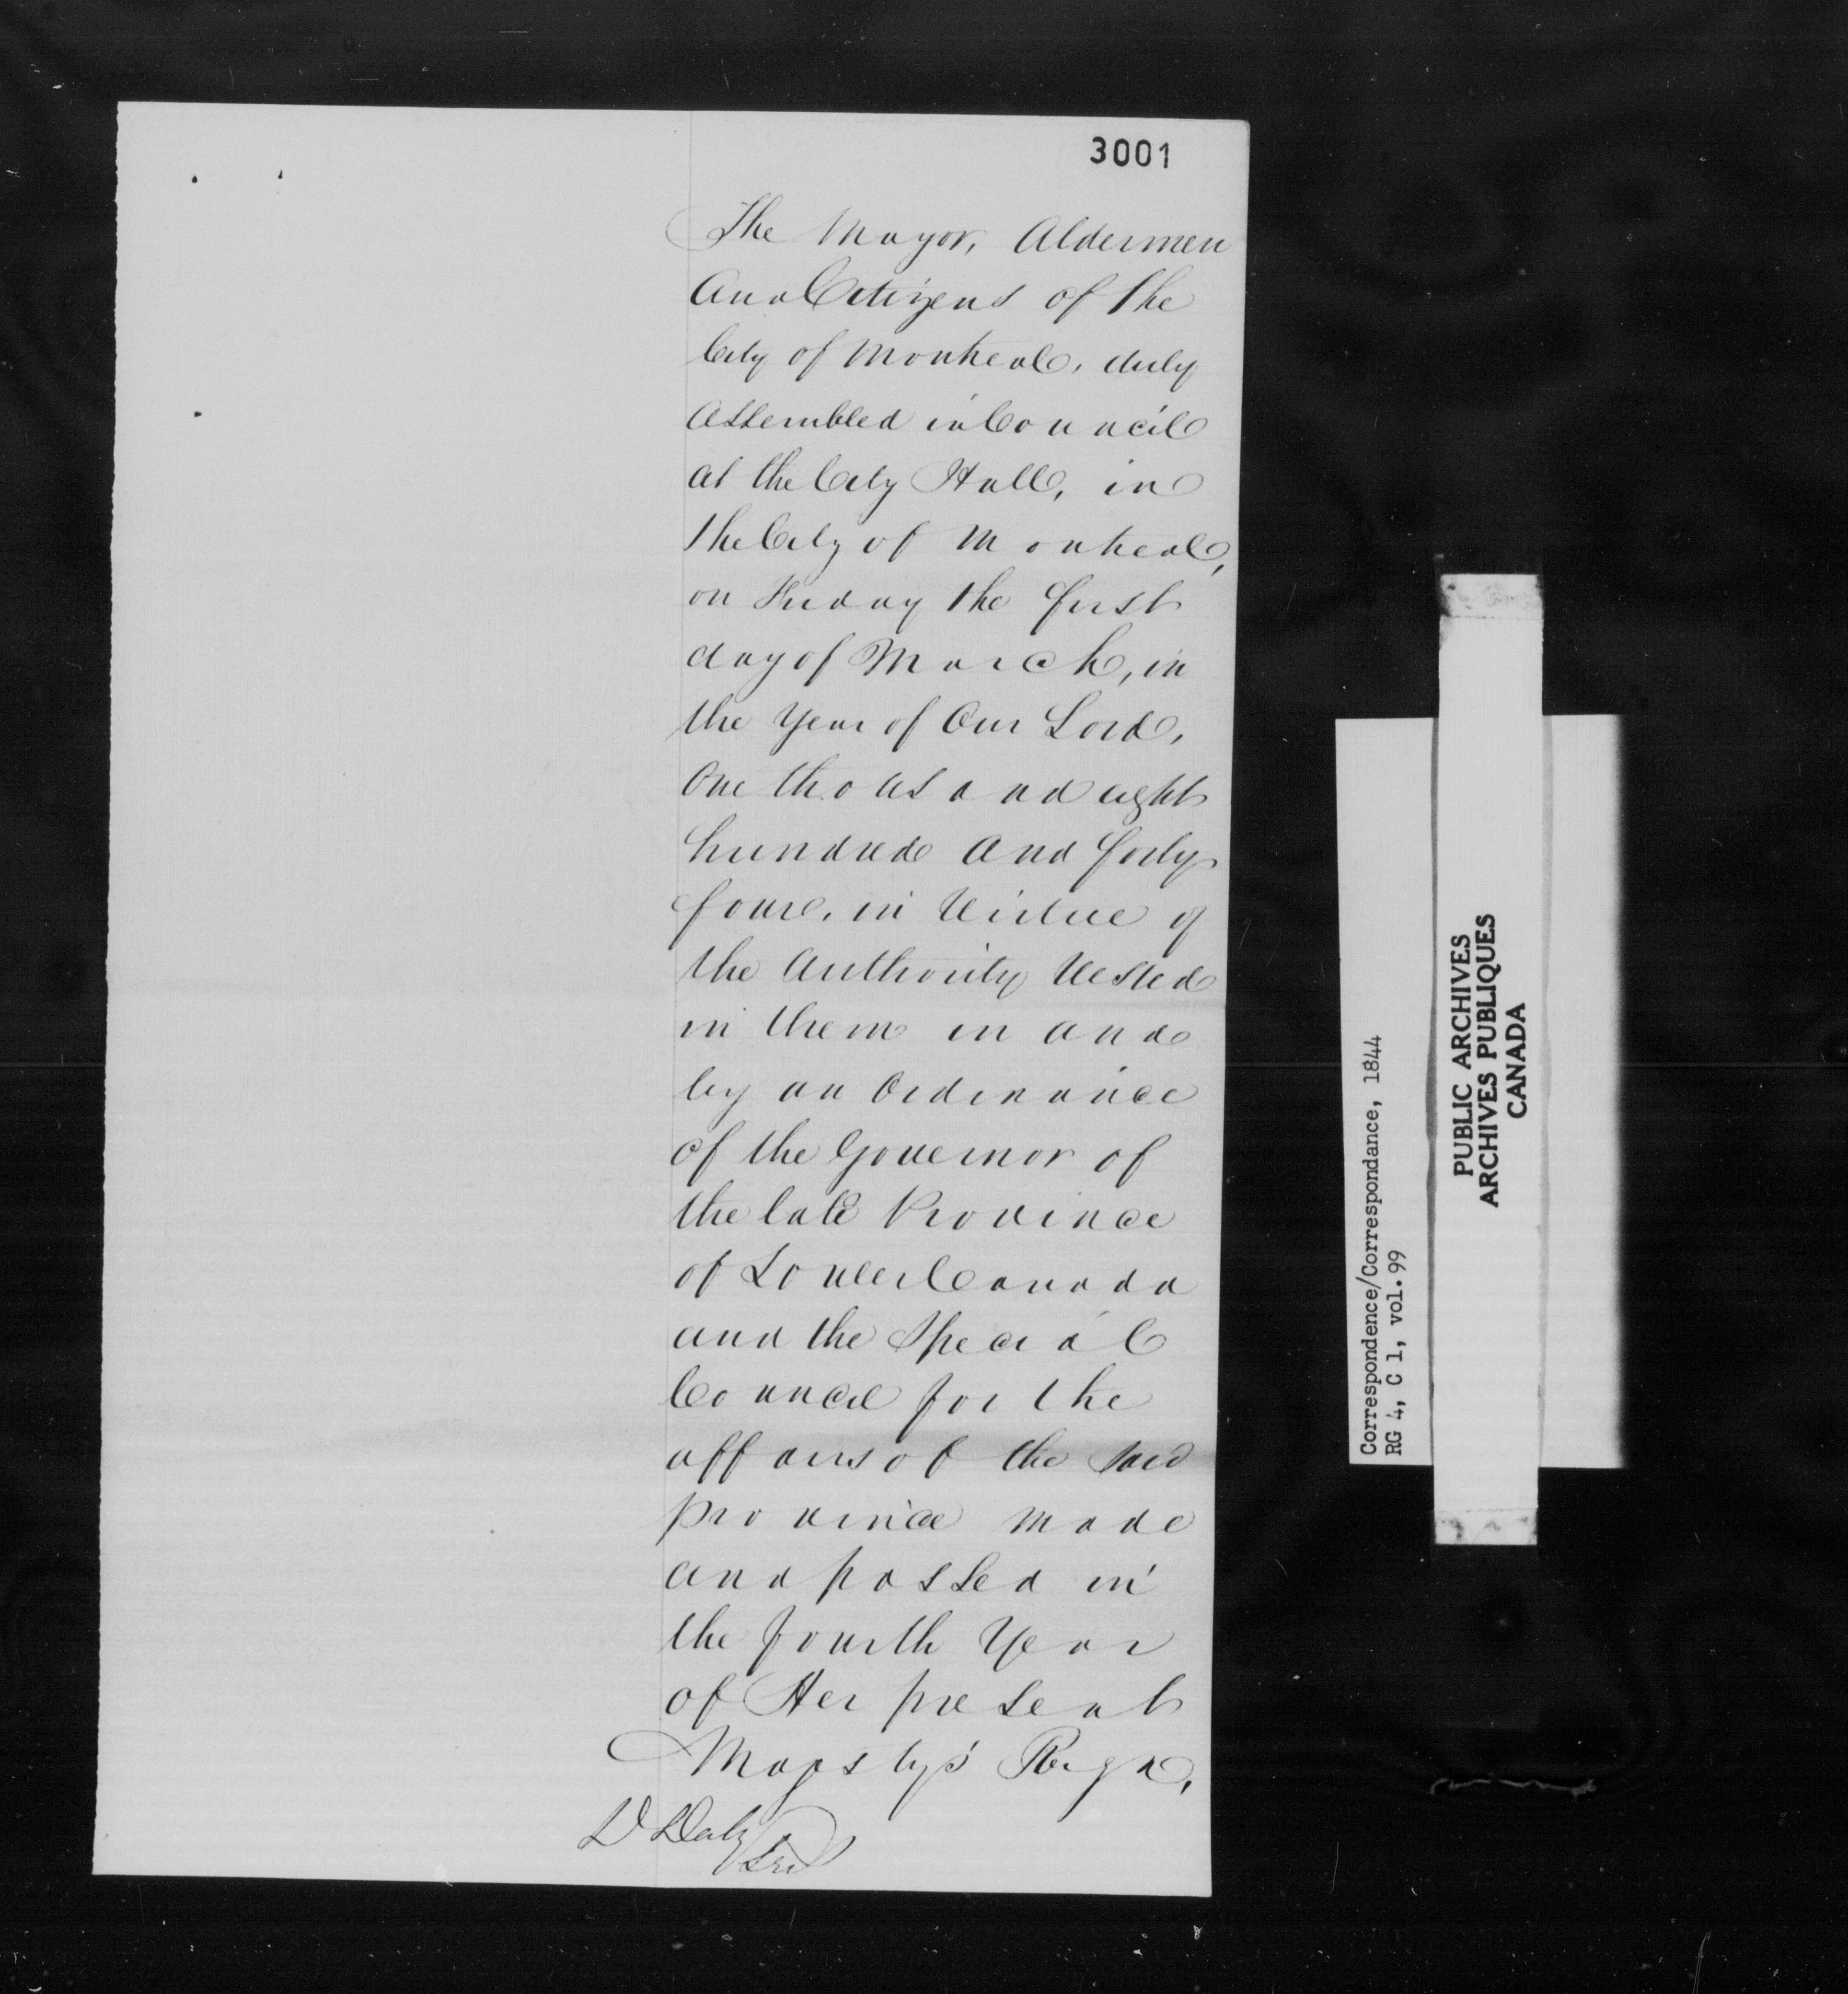 3001
The Mayor, Aldermen
And Citizens of the
City of Montreal, duly
Assembled in Council
at the City Hall, in
the City of Montreal,
on Friday the first
day of March, in
the Year of Our Lord,
One thousand eight
hundred And forty
four, in Virtue of
the Authority Vested
in them in and
by an Ordinance
of the Governor of
the late Province
of Lower Canada
and the Special
Council for the
affairs of the said
province made
and passed in
the fourth Year
of Her present
Majesty's Reign,
D Daly
Correspondence/Correspondance, 1844
RG 4, C 1, vol. 99
PUBLIC ARCHIVES
ARCHIVES PUBLIQUES
CANADA